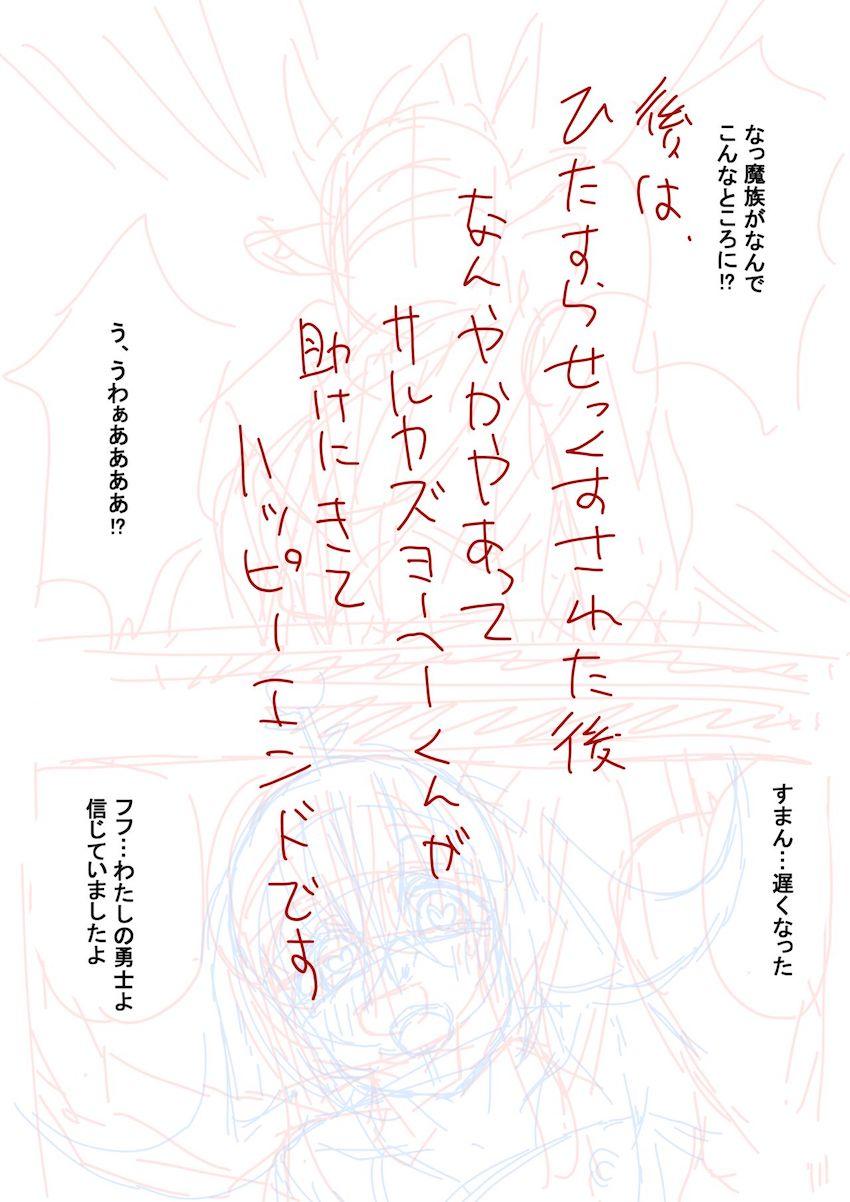 なっ魔族がなんで
こんなところに!?
後は、
ひたすらせっくすされた後
なんやかやあって
サルカズヨーへーくんが
助けにきて
ハッピーエンドです
う、うわぁああああ!?
すまん…遅くなった
フフ…わたしの勇士よ
信じていましたよ